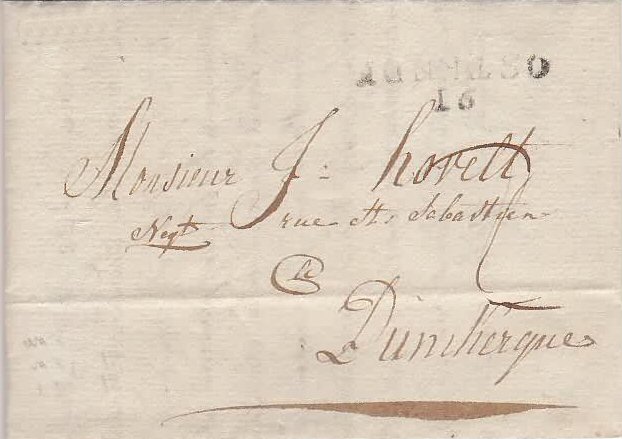 16
Monsieur J: hovelt
Negt rue St. Sebastien
à
Dunckerque